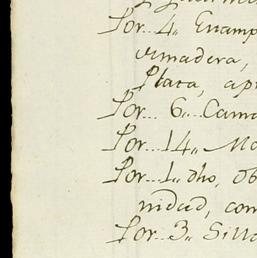 Por... 4„ Enamp
vmadera,
Plata, ap
Por... 6„ Cama
Por... 14„ Mo
Por... 1„ dho, ob
nidad, con
Por... 3„ Silla